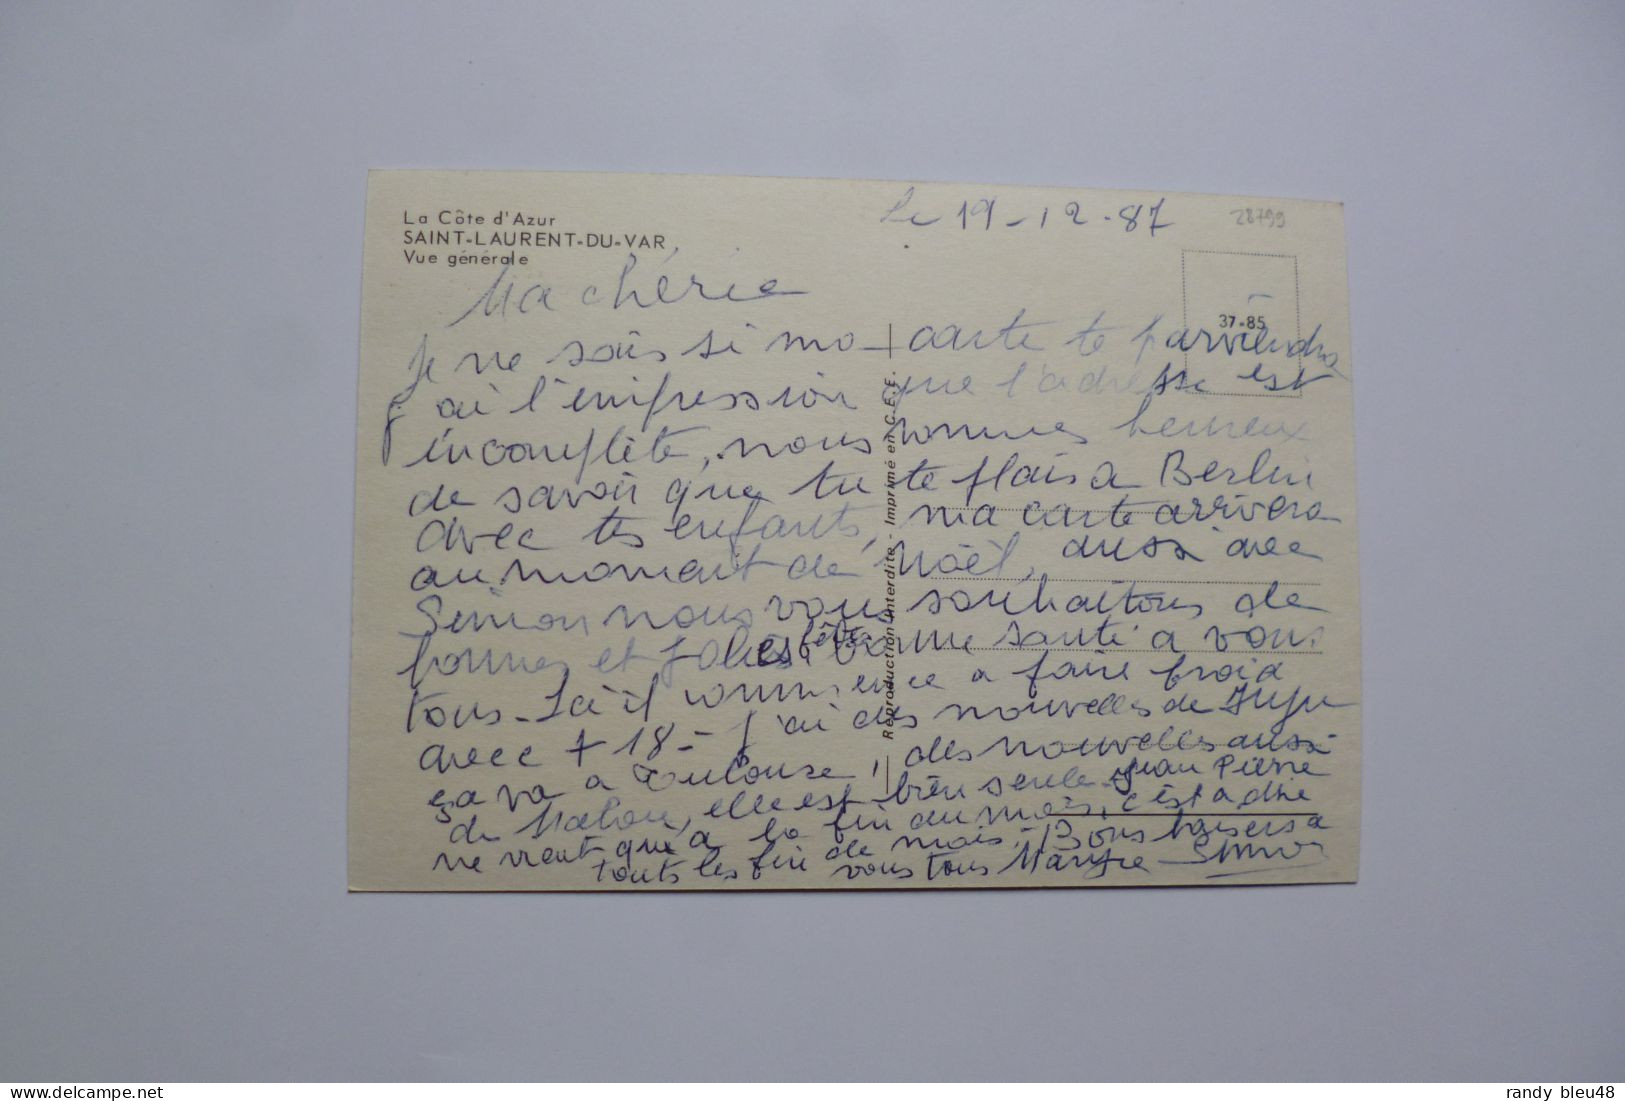 La Côte d'Azur
SAINT-LAURENT-DU-VAR
Vue générale
Le 19-12-87
28799
37-85
Reproduction Interdite - Imprimé en C.E.E.
Ma chérie
Je ne sais si ma carte te parviendra
j'ai l'impression que l'adresse est
incomplète, nous sommes heureux
de savoir que tu te plais a Berlin
avec tes enfants, ma carte arrivera
au moment de Noël, aussi avec
Simon nous vous souhaitons de
bonnes et fêtes bonne santé a vous
tous - Ici il commence a faire froid
avec + 18 - J'ai des nouvelles de
ça va a Toulouse, des nouvelles aussi
de elle est bien seule - Jean Pierre
ne vient qu'a la fin du mois, c'est a dire
touts les fin de mois - Bons baisers a
vous tous Maryse Simon
delcampe.net
randy bleu48